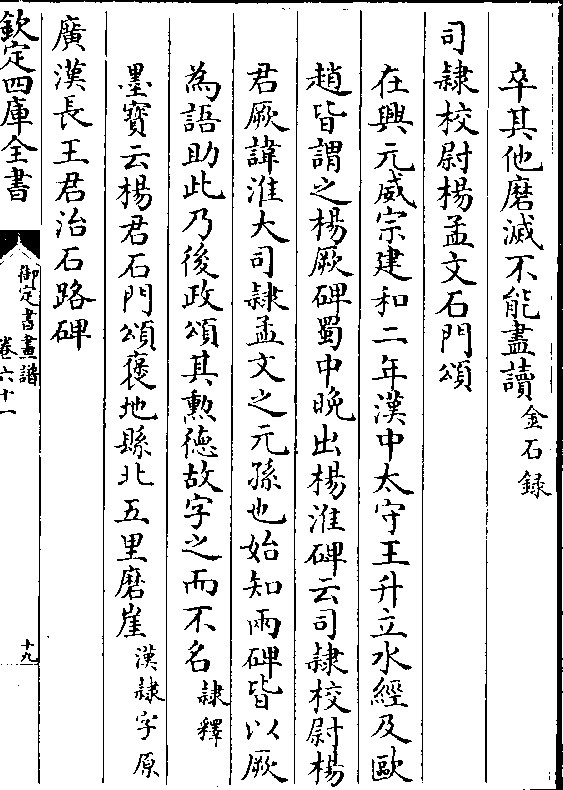 卒其他磨滅不能盡讀金石録
司隷校尉楊孟文石門頌
在興元威宗建和二年漢中太守王升立水經及歐
趙皆謂之楊厥碑蜀中晩出楊淮碑云司隷校尉楊
君厥諱淮大司隷孟文之元孫也始知兩碑皆以厥
為語助此乃後政頌其勲德故字之而不名隷釋
墨寶云楊君石門頌褒地縣北五里磨崖漢隷字原
廣漢長王君治石路碑
欽定四庫全書
御定書畫譜
卷六十一
十九